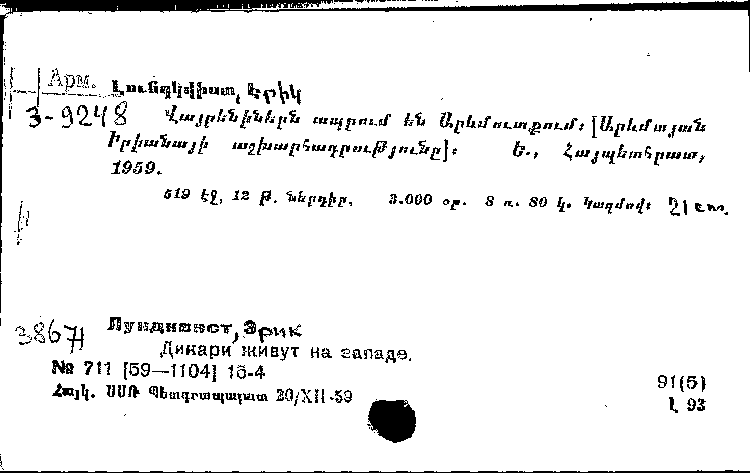 Арм.
Լունդկվիստ, Երիկ
3-9248
Վայրենիներն ապրում են Արևմուտքում: [Արևմտյան
Իրիանայի աշխարհագրությունը]: Ե., Հայպետհրատ,
1959.
519 էջ, 12 թ. ներդիր, 3.000 օր. 8 ռ. 80 կ. Կազմով: 21 см.
Лундквист, Эрик
Дикари живут на западе.
№ 711 [59—1104] 16-4
91(5)
Հայկ. ՍՍՌ Պետգրապալատ 29/XII-59
Լ 93